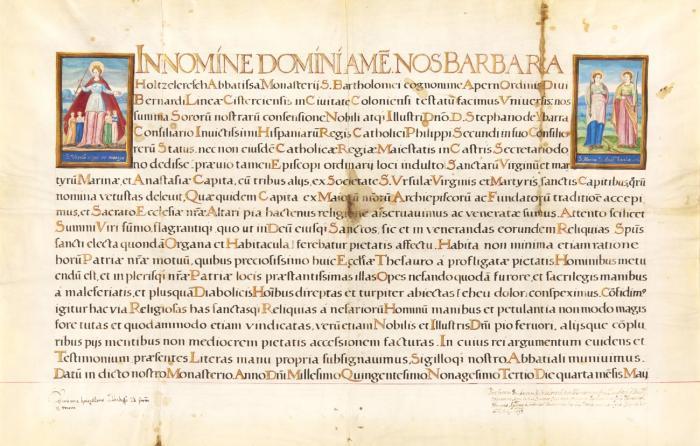 IN NOMINE DOMINI AMĒ. NOS BARBARA
Holtzelersch Abbatissa Monasterij S. Bartholomei cognomine Apern Ordinis Diui
Bernardi Lineæ Cisterciensis in Ciuitate Coloniensi testatū facimus Vniuersis, nos
summa Sororū nostrarū consensione Nobili atq́ Illustri Dn̄o. D. Stephano de Ybarra
Consiliario Inuictissimi Hispaniarū Regis Catholici Philippi Secundi in suo Consilio
rerū Status, nec non eiusdē Catholicæ Regiæ Maiestatis in Castris Secretario do
no dedisse præuio tamen Episcopi ordinarij loci indulto Sanctarū Virginū et mar
tyrū Marinæ, et Anastasiæ Capita, cū tribus alijs, ex Societate S. Vrsulæ Virginis et Martyris, sanctis Capitibus, qrū
nomina vetustas deleuit, Quæ quidem Capita ex Maiorū nrorū Archiepiscorū ac Fundatorū traditiōe accepi
mus, et Sacrato Ecclesiæ nræ Altari pia hactenus religione asseruauimus ac veneratæ sumus. Attento scilicet
Summi Viri summo, flagrantiq́, quo ut in Deū, eiusq́ Sanctos, sic et in venerandas eorundem Reliquias Spūs
sancti electa quondā Organa et Habitacula ferebatur pietatis affectu. Habita non minima etiam ratione
horū Patriæ nræ motuū, quibus preciosissimo huic Ecclæ Thesauro á profligatæ pietatis Hominibus metu
endū est, et in plerisq́ nræ Patriæ locis præstantissimas illas Opes nefando quodā furore, et sacrilegis manibus
á maleferiatis, et plusquā Diabolicis Hoībus direptas et turpiter abiectas (eheu dolor) conspeximus. Cōfidim⁹
igitur hac via Religiosas has sanctasq́ Reliquias á nefariorū Hominū manibus et petulantia non modo magis
fore tutas et quodammodo etiam vindicatas, verū etiam Nobilis et Illustris Dn̄i pio feruori, alijsque cōplu
ribus pijs mentibus non mediocrem pietatis accessionem facturas. In cuius rei argumentum euidens et
Testimonium præsentes Literas manu propria subsignauimus, Sigilloq́ nostro Abbatiali muniuimus.
Datū in dicto nostro Monasterio. Anno Dn̄i Millesimo Quingentesimo Nonagesimo Tertio Die quarta mēsis Maij